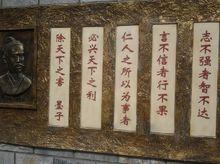 志不强者智不达
言不信者行不果
仁人之所以为事者
必兴天下之利
除天下之害 墨子